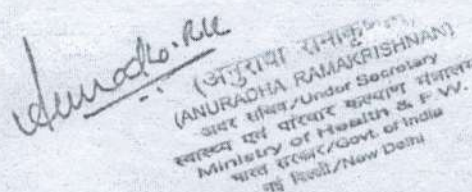 Anuradha.RK
(अनुराधा रामाकृष्णन)
(ANURADHA RAMAKRISHNAN)
अवर सचिव/Under Secretary
स्वास्थ्य एवं परिवार कल्याण मंत्रालय
Ministry of Health & F.W.
भारत सरकार/Govt. of India
नई दिल्ली/New Delhi